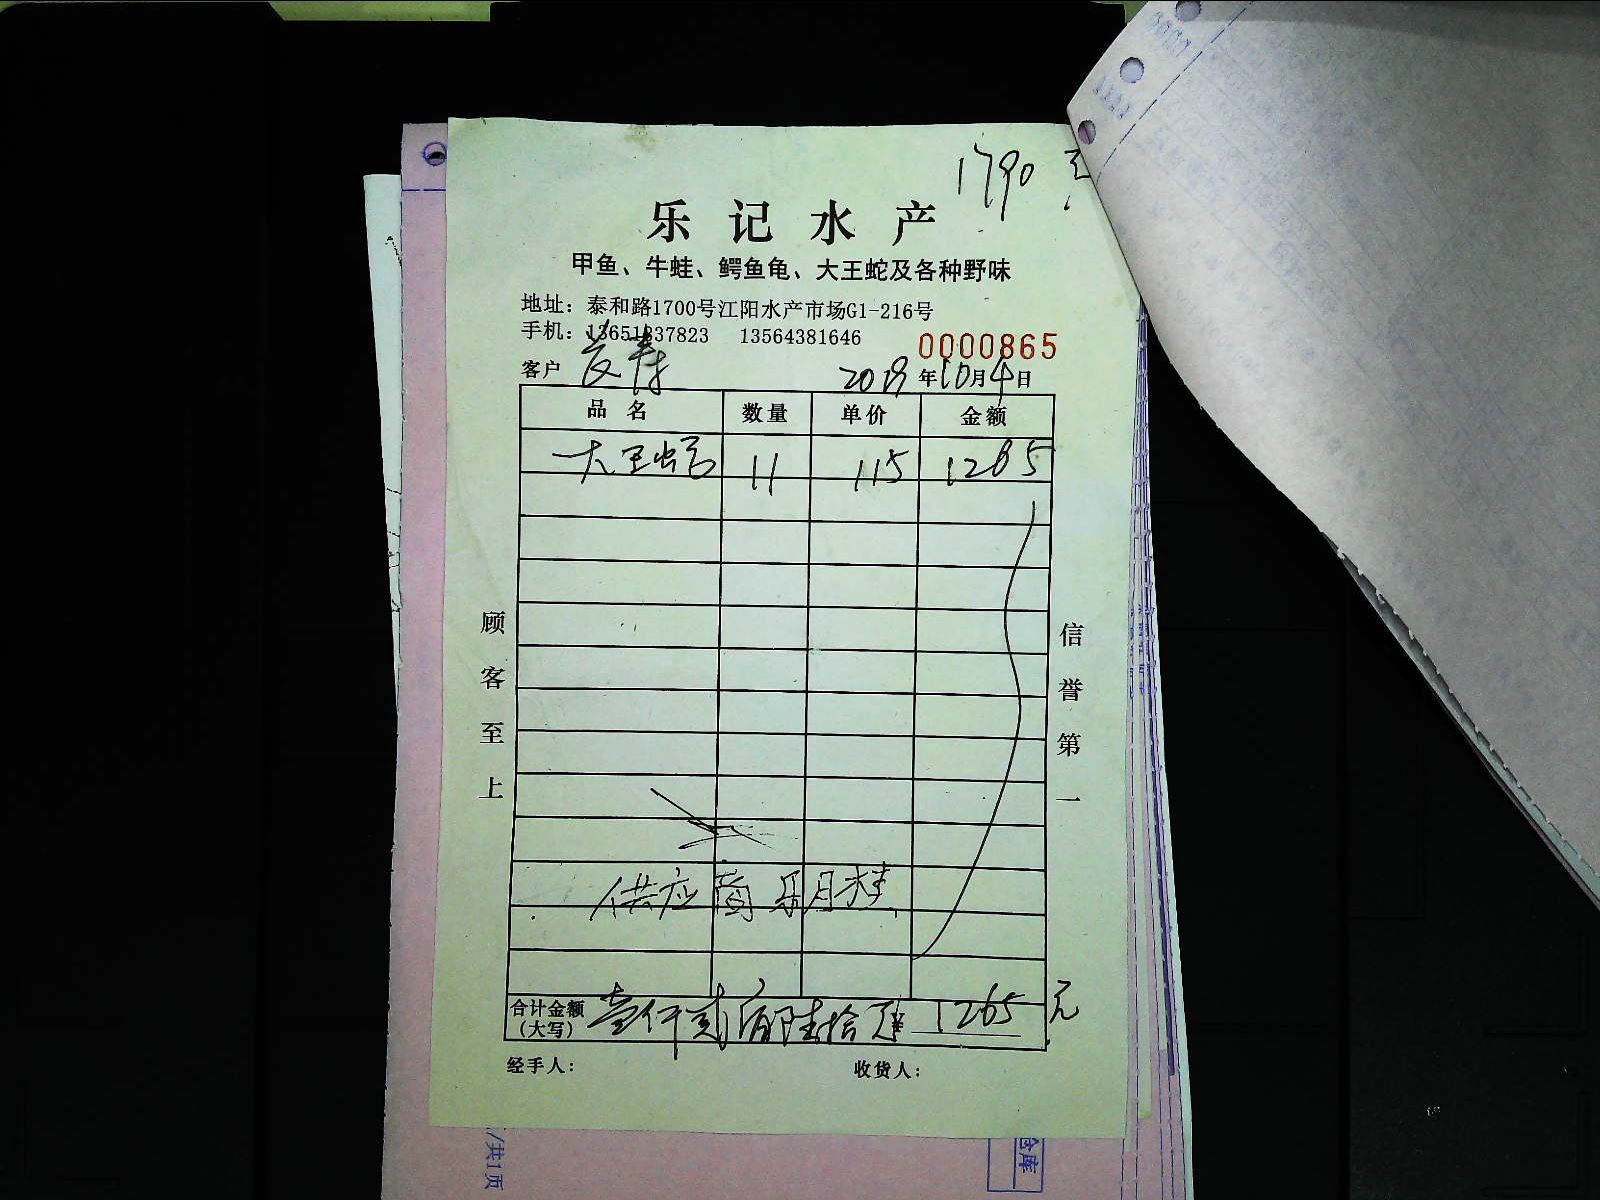 1790 元
乐记水产
甲鱼、牛蛙、鳄鱼龟、大王蛇及各种野味
地址：泰和路1700号江阳水产市场G1-216号
手机：13651837823 13564381646
0000865
客户 2019年10月4日
品名 数量 单价 金额
大王蛇 11 115 1265
顾客至上
信誉第一
供应商 乐月桂
合计金额（大写） 壹仟贰佰陆拾 1265 元
经手人： 收货人：
/共1页
仓库